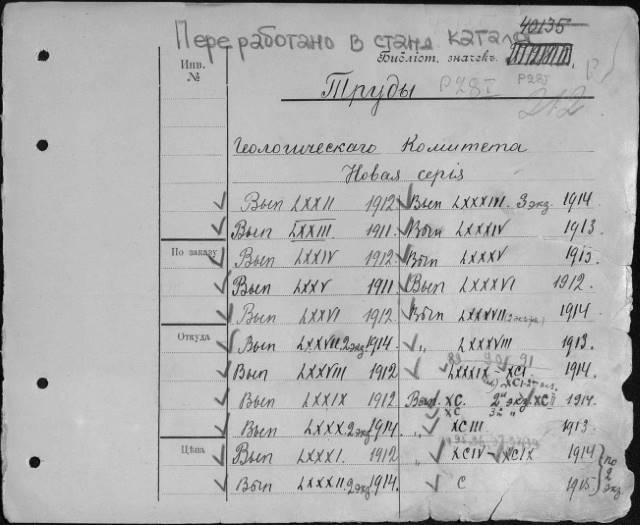 40135
Переработано в станд каталог
Инв. №
Библіот. значекъ.
Труды
P28I
P28I
212
Геологическаго Комитета
Новая серія
Вып LXXII 1912
Вып LXXXIII. 3 экз 1914
Вып LXXIII 1911.
Вып LXXXIV 1913.
По заказу
Вып LXXIV 1912
Вып LXXXV 1913.
Вып LXXV 1911.
Вып LXXXVI 1912.
Вып LXXVI 1912
Вып LXXXVII (2 экз.) 1914
Откуда
Вып LXXVII. 2 экз 1914.
„ LXXXVIII 1913.
Вып LXXVIII 1912
LXXXIX - XCI 1914.
Вып LXXIX 1912
Вып. XC. 2й экз. XCII 1914.
XC 3й „
Вып LXXX. 2 экз 1914.
„ XCIII 1913
Цѣна
Вып LXXXI. 1912
„ XCIV - XCIX 1914
Вып LXXXII. 2 экз 1914.
„ C 1915
по 2 экз